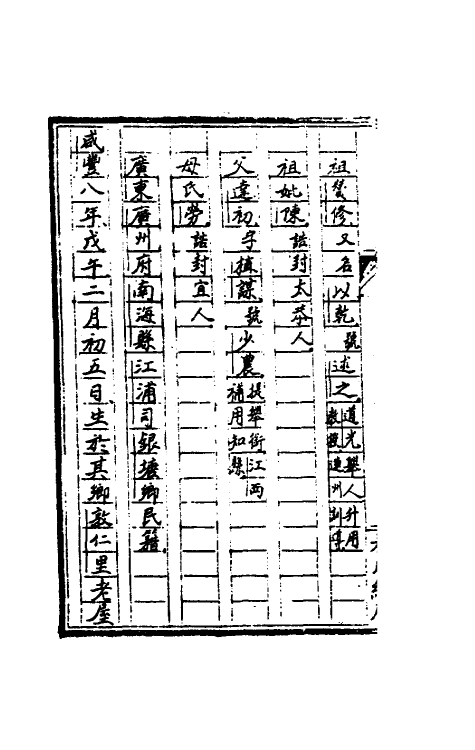 祖贊修又名以乾號述之道光舉人升用教授連州訓導
祖妣陳誥封太恭人
父達初字植謀號少農提舉銜江西補用知縣
母氏勞誥封宜人
廣東廣州府南海縣江浦司銀塘鄉民籍
咸豐八年戊午二月初五日生於其鄉敦仁里老屋